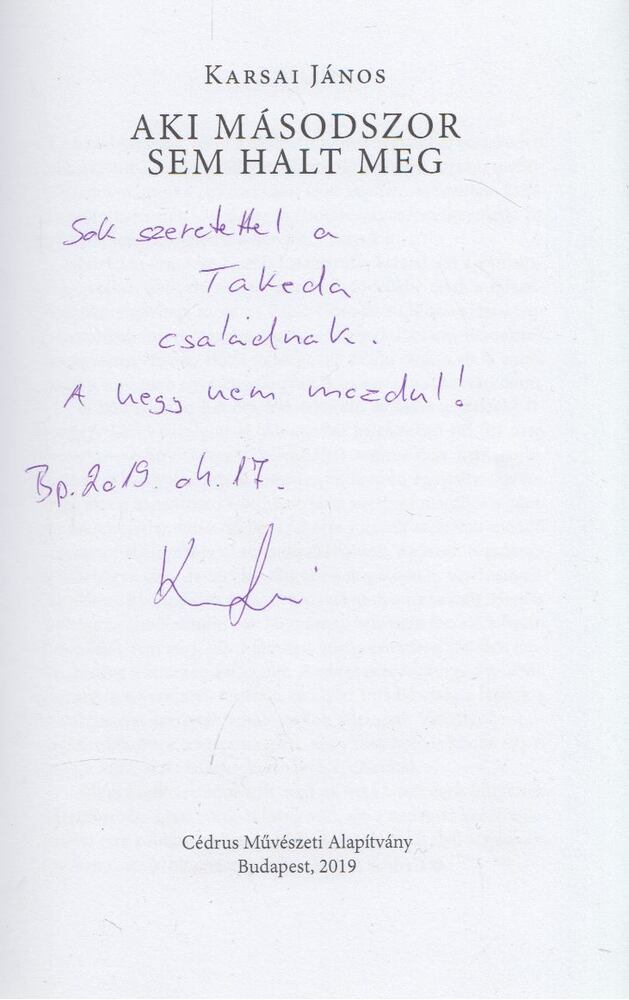 KARSAI JÁNOS
AKI MÁSODSZOR
SEM HALT MEG
Sok szeretettel a
Takeda
családnak.
A hegy nem mozdul!
Bp. 2019. ok. 17.
Cédrus Művészeti Alapítvány
Budapest, 2019